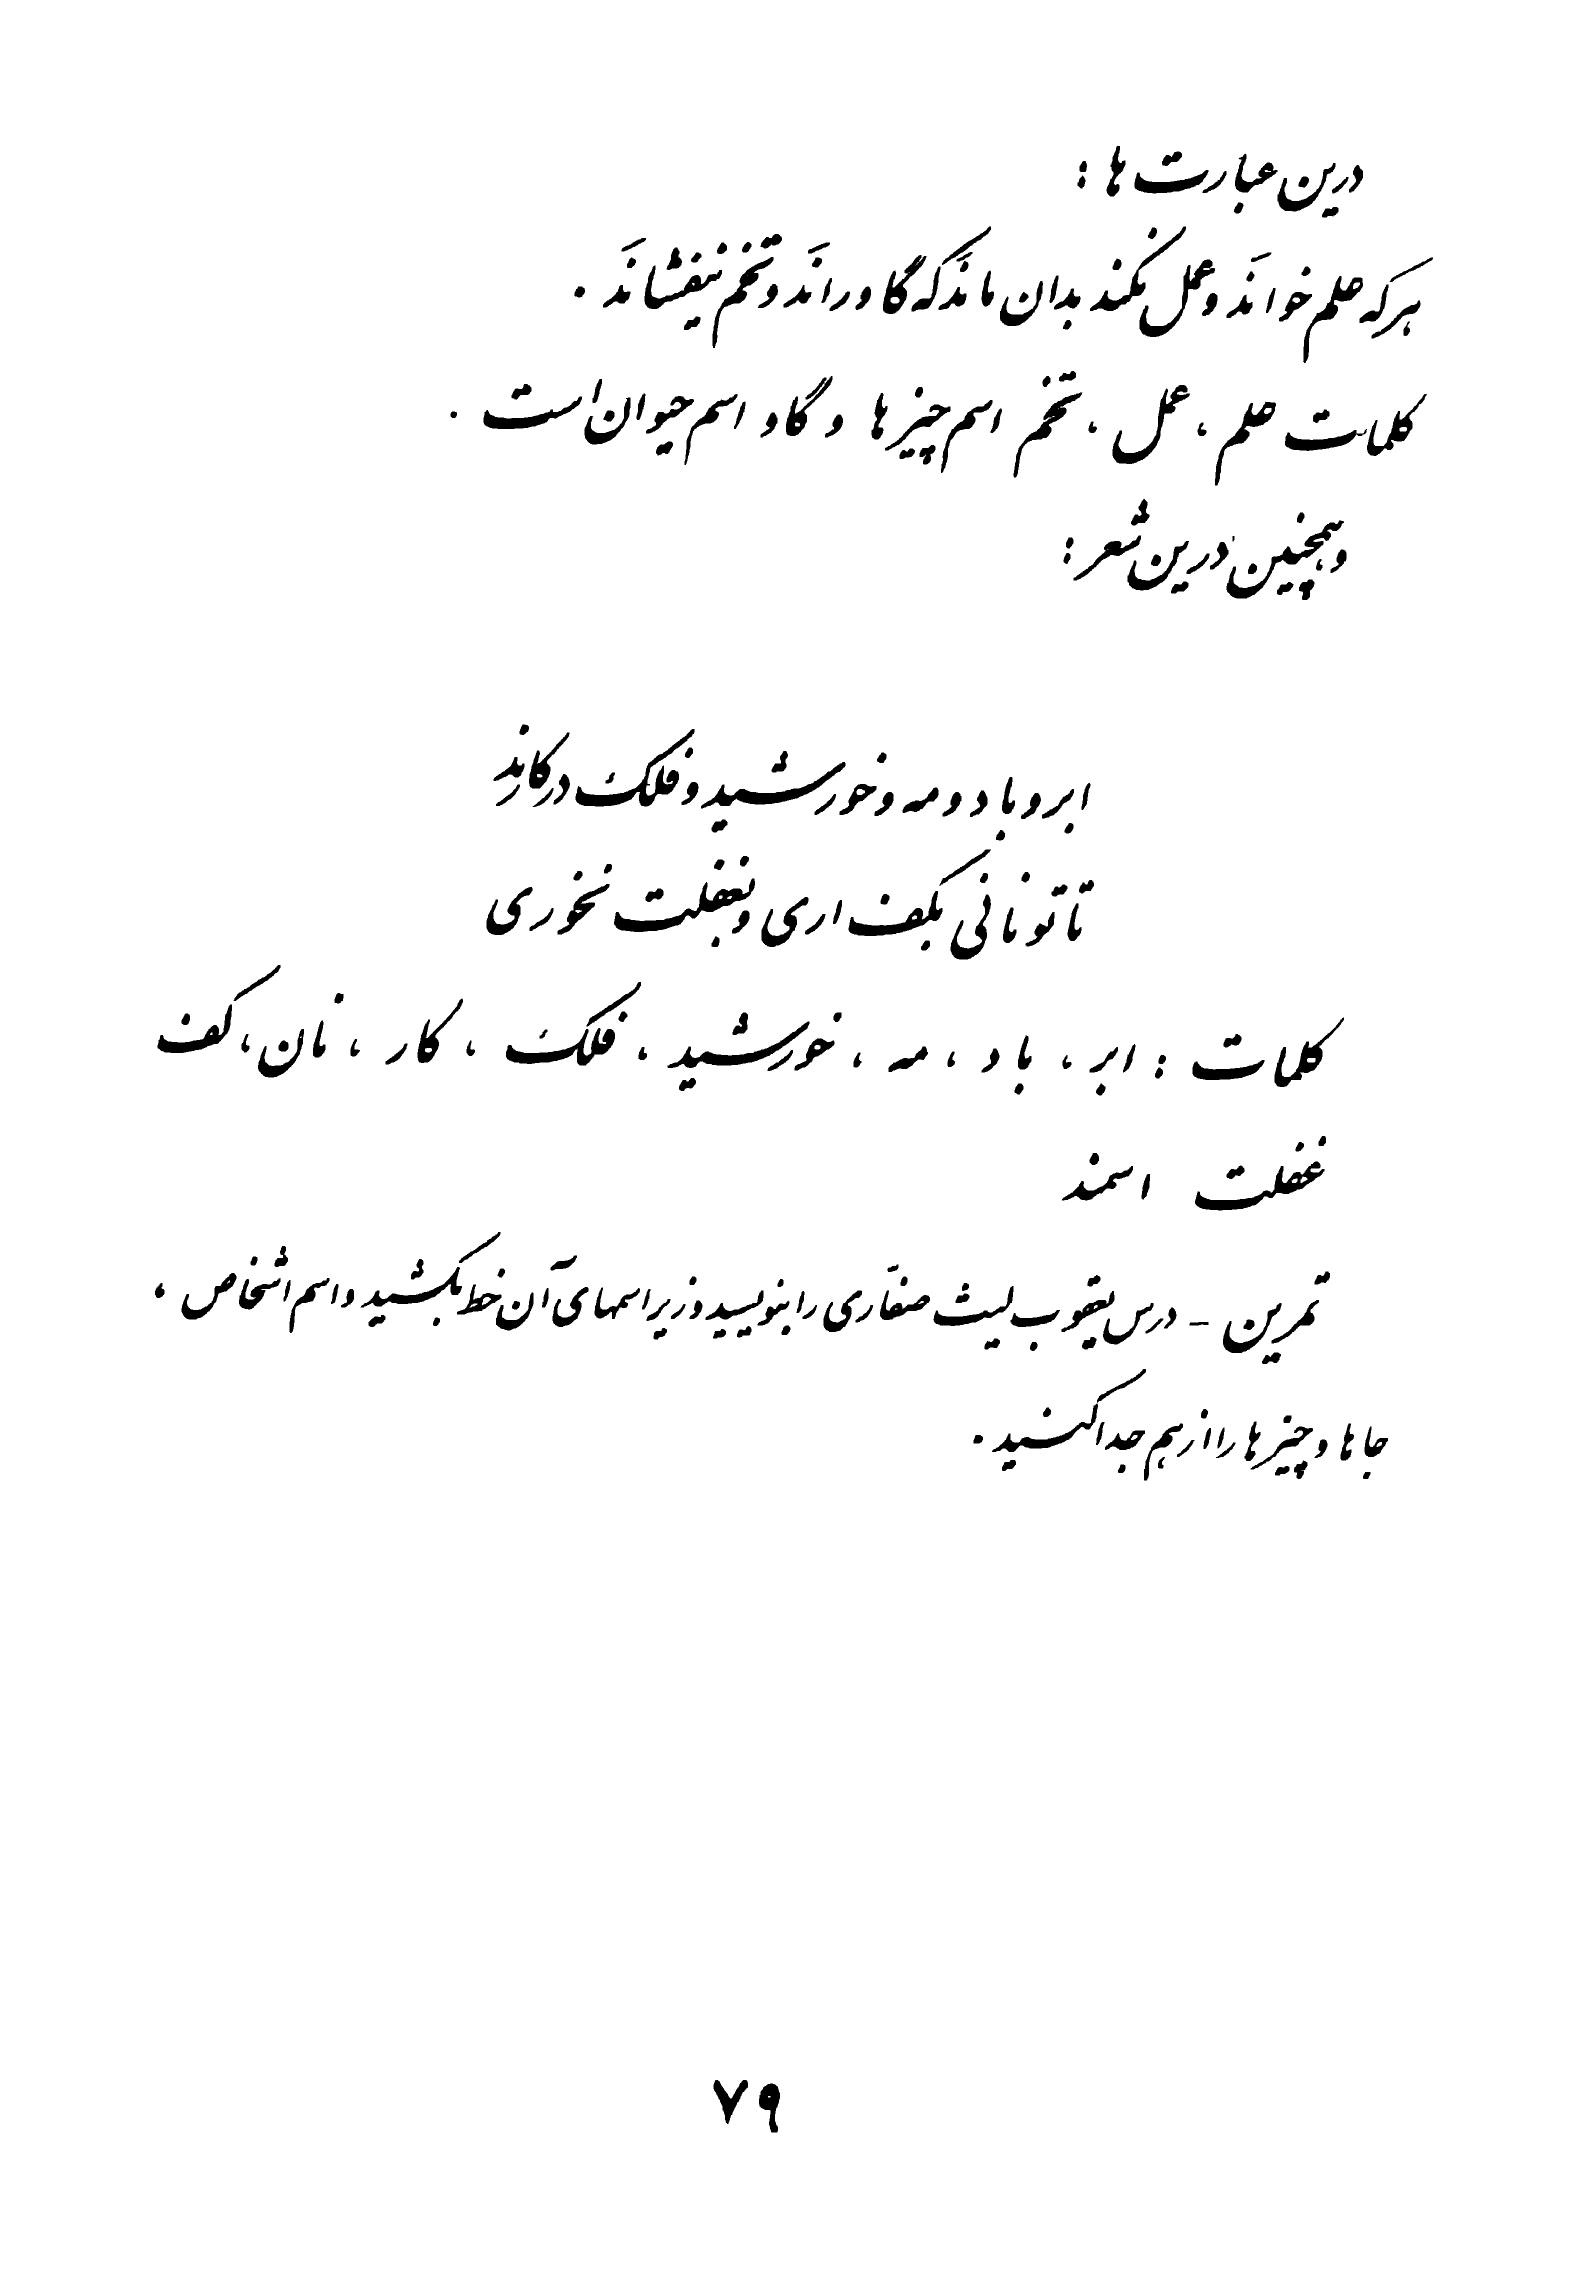 درین عبارت ها :
هر که علم خوانَد و عمل نکند بدان مانَد که گاو رانَد و تخم نیفشانَد .
کلمات علم ، عمل ، تخم اسم چیز ها و گاو اسم حیوان است .
و همچنین درین شعر :
ابر و باد و مه و خورشید و فلک در کارند
تا تو نانی بکف اری و بغفلت نخوری
کلمات : ابر ، باد ، مه ، خورشید ، فلک ، کار ، نان ، کف
غفلت اسمند
تمرین - درس یعقوب لیث صفّاری را بنویسید و زیر اسمهای آن خط بکشید و اسم اشخاص ،
جاها و چیز ها را از هم جدا کنید .
۷۹